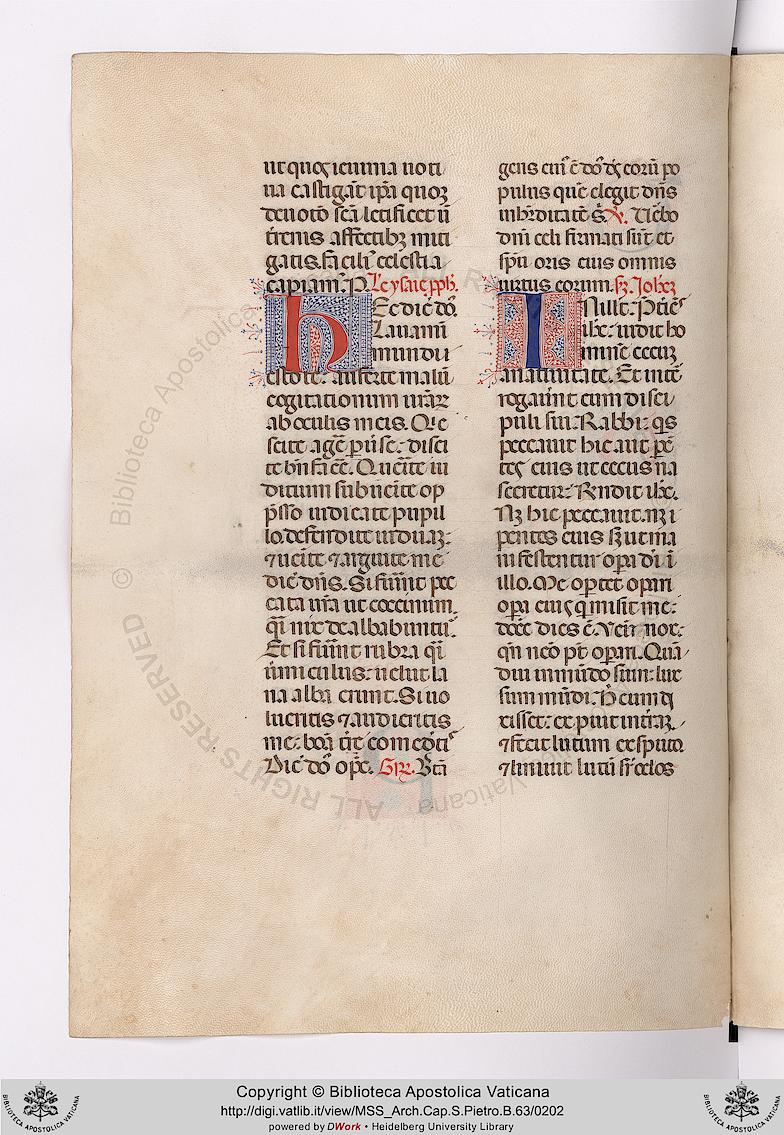 ut quos ieiunia uoti
ua castigāt ip̄a quoꝫ
deuotō sc̄a letificet ut
trenis affectibꝫ miti
gatis. facilī celestia
capiam. P. Lc̄ ysaie pph̄.
Hec dic̄ dō.
Lauamī
mundi
estote. auferte malū
cogitationum ur̄aꝝ
ab oculis meis. Qui
escite aḡe ꝑuse: disci
te bn̄ fac̄e. Querite iu
dicium subuenite op
p̄sso iudicate pupil
lo. defendite uiduaꝫ:
⁊ uenite ⁊ arguite me
dic̄ dn̄s. Si fuerint pec
cata ur̄a ut coccinum.
q̄i nix dealbabuntur.
Et si fuerint rubra q̄i
uermiculus: uelut la
na alba erunt. Si uo
lueritis ⁊ audieritis
me: bōa terre comedetis
Dic̄ dō op̄s. Gr̄. Btā
gens cuī ē dō ds̄ eorū po
pulus quē elegit dn̄s
in h̄editatē s̄. V̄. Uerbo
dn̄i celi firmati sūt et
sp̄u oris eius omnis
uirtus eorum. Sꝫ. Joh̄eꝫ
In illo t̄. P̄teriē
ih̄c: uidit ho
minē cecuꝫ
a natiuitate. Et inter
rogauerūt eum disci
puli sui: Rabbi: qs̄
peccauit hic aut parē
tes eius ut cecus na
sceretur: Rn̄dit ih̄c.
Neqꝫ hic peccauit. neqꝫ
parentes eius sꝫ ut ma
nifestentur oꝑa dei ī
illo. Me oportet operari
oꝑa eius qui misit me:
donec dies ē. Venit nox:
qn̄ nemo pt̄ operari. Quā
diu in mūdo sum: lux
sum mūdi. Hec cum di
xisset: expuit in terraꝫ.
⁊ fecit lutum ex sputo
⁊ liniuit lutū sr̄ oclos
Copyright © Biblioteca Apostolica Vaticana
http://digi.vatlib.it/view/MSS_Arch.Cap.S.Pietro.B.63/0202
powered by DWork • Heidelberg University Library